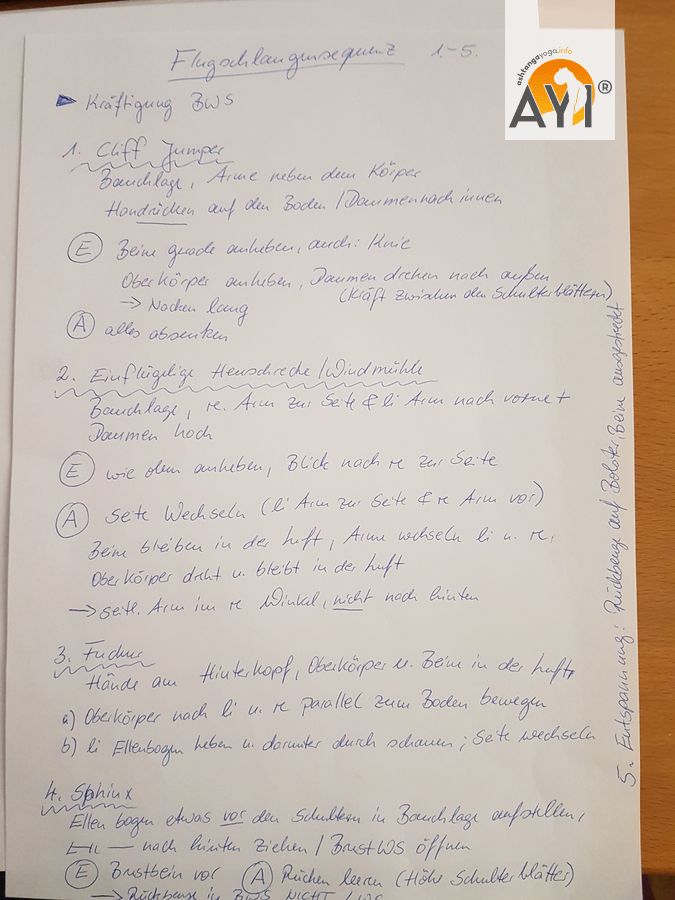 ashtangayoga.info
AYI®
Flugschlangensequenz 1.-5.
Kräftigung BWS
1. Cliff Jumper
Bauchlage, Arme neben dem Körper
Handrücken auf den Boden / Daumen nach innen
E Beine gerade anheben, auch: Knie
Oberkörper anheben, Daumen drehen nach außen
(Kraft zwischen den Schulterblättern)
→ Nacken lang
A alles absenken
2. Einflügelige Heuschrecke / Windmühle
Bauchlage, re. Arm zur Seite & li Arm nach vorne +
Daumen hoch
E wie oben anheben, Blick nach re zur Seite
A Seite Wechseln (li Arm zur Seite & re Arm vor)
Beine bleiben in der Luft, Arme wechseln li u. re,
Oberkörper dreht u. bleibt in der Luft
→ seitl. Arm im re Winkel, nicht nach hinten
3.
Hände am Hinterkopf, Oberkörper u. Beine in der Luft,
a) Oberkörper nach li u. re parallel zum Boden bewegen
b) li Ellenbogen heben u. darunter durch schauen; Seite wechseln
4. Sphinx
Ellen bogen etwas vor den Schultern in Bauchlage aufstellen,
nach hinten ziehen / Brust WS öffnen
E Brustbein vor A Rücken leeren (Höhe Schulterblätter)
→ Rückbeuge in BWS NICHT LWS
5. Entspannung: Rückbeuge auf Bolster, Beine ausgestreckt